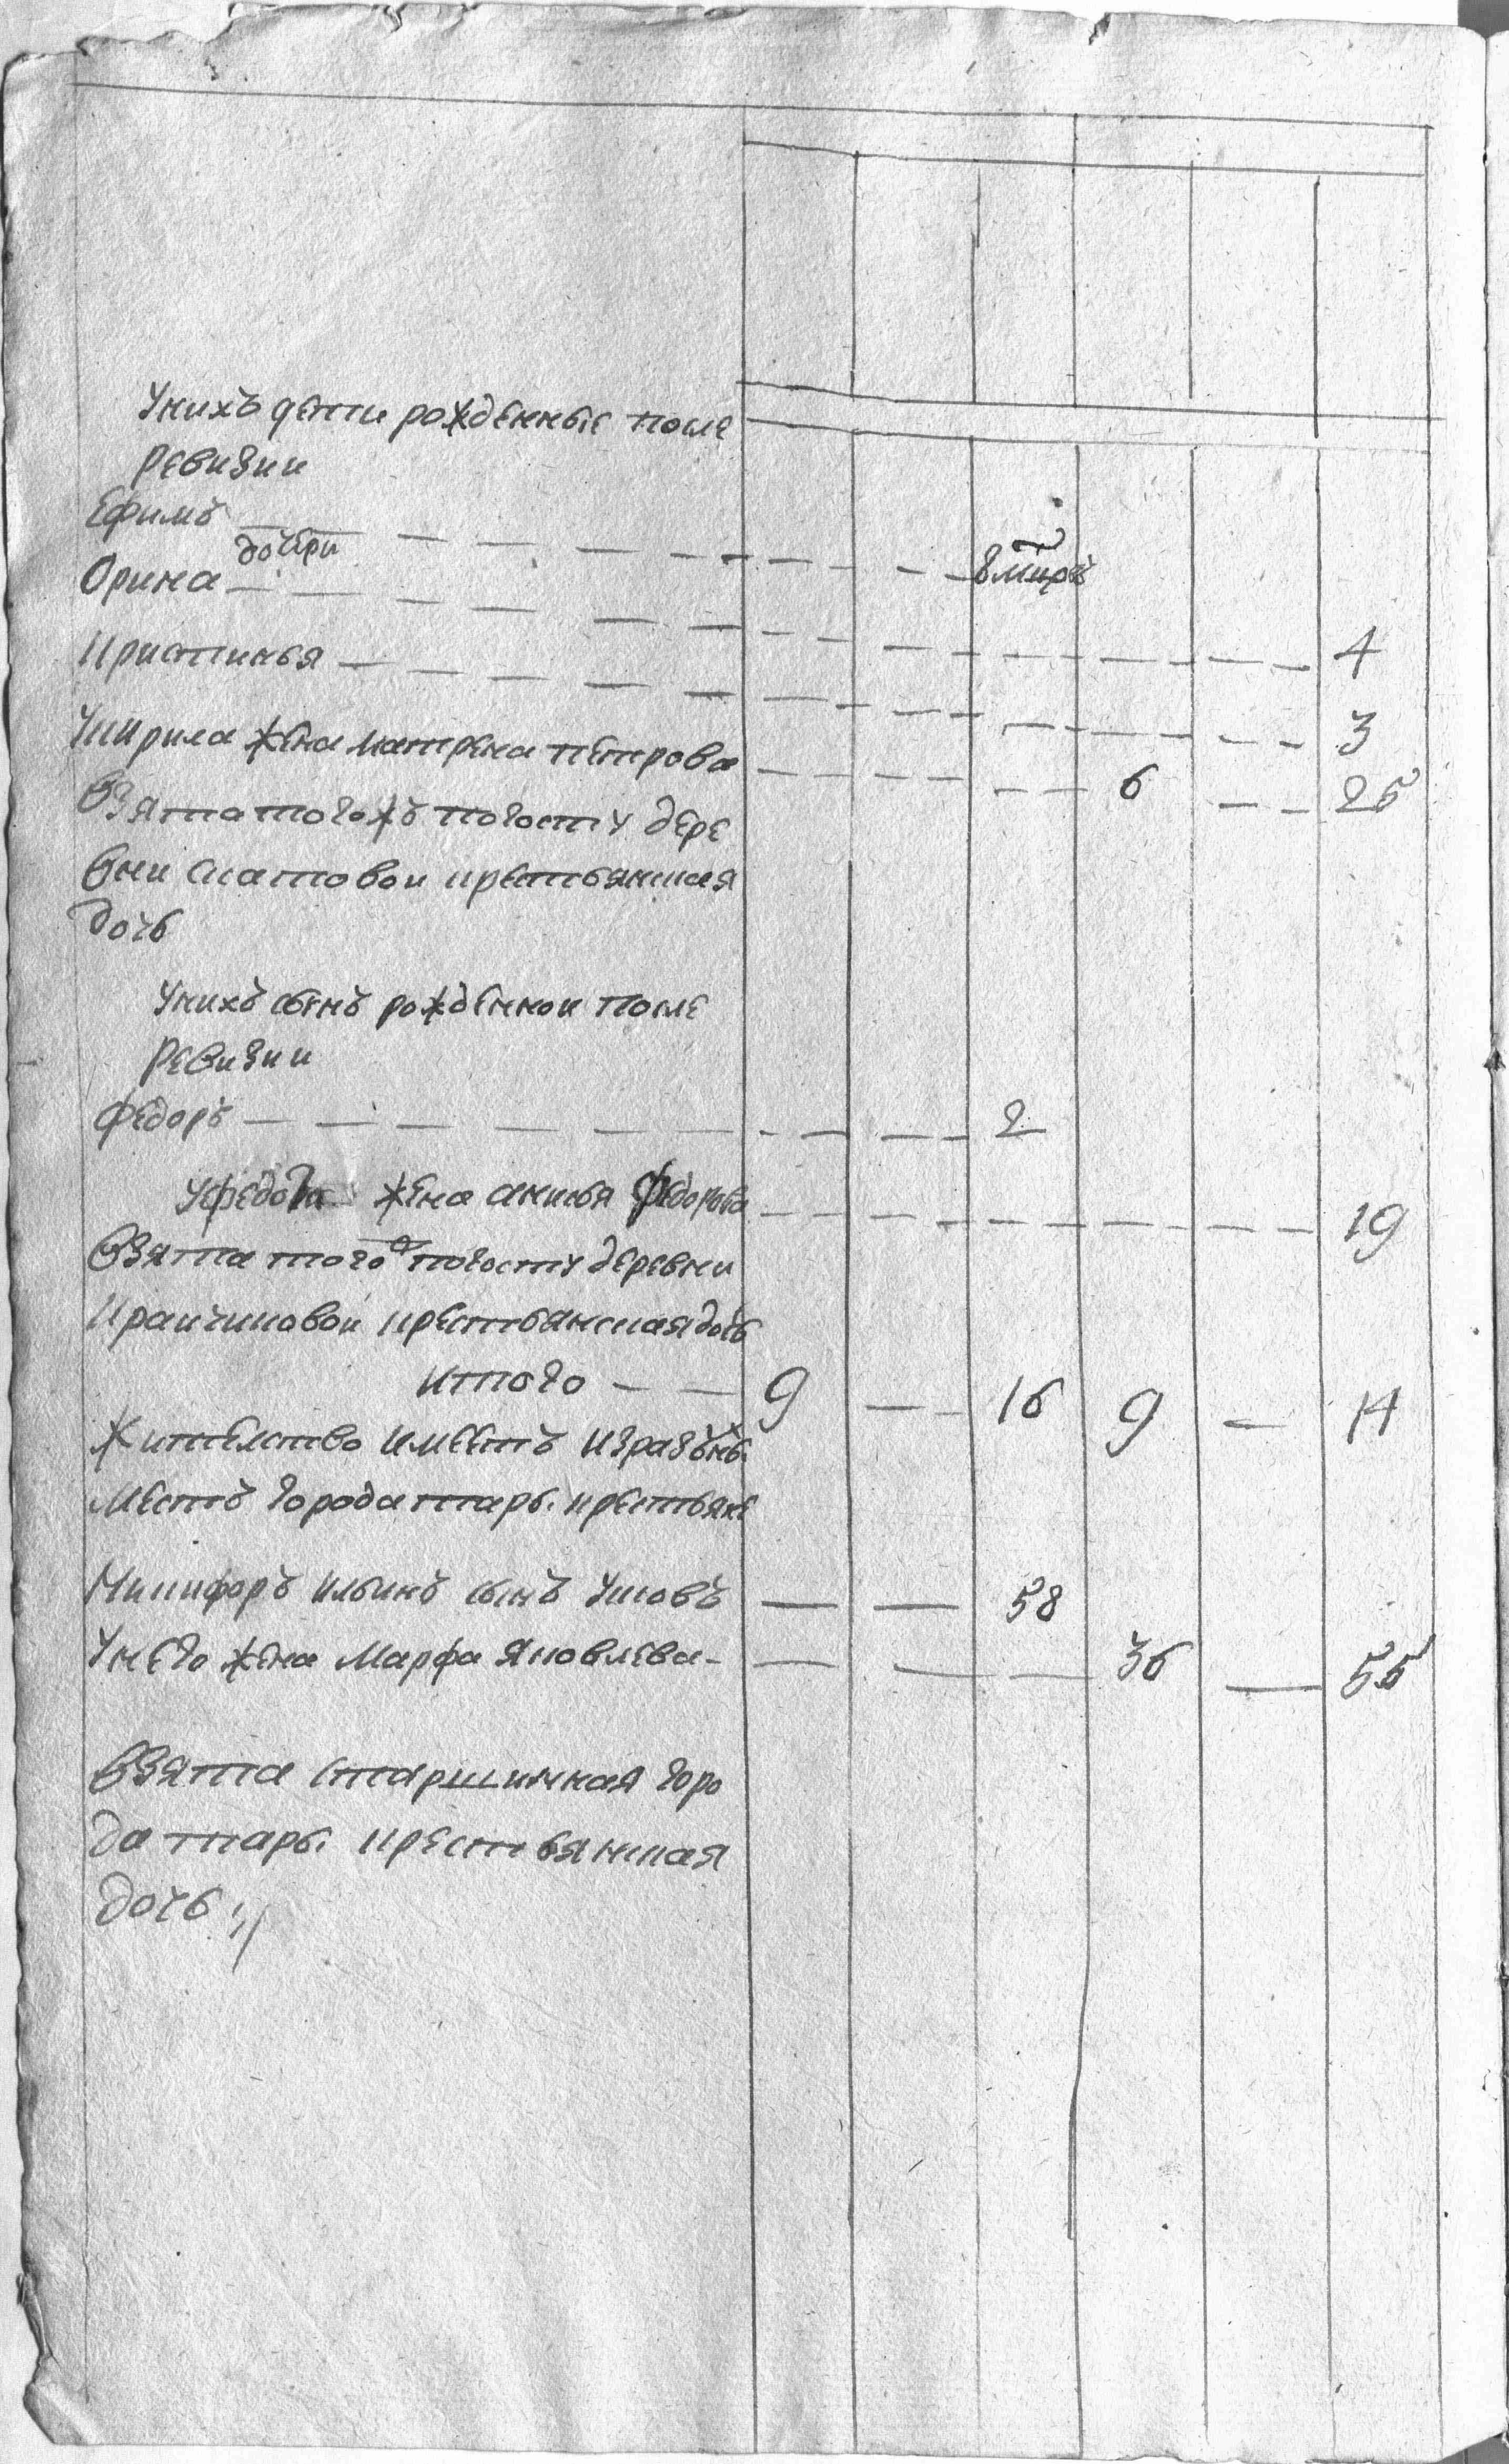 Унихъ дети рожденные после
ревизии
Ефимъ
дочери
Орина 4
Кристинья 3
Укирила жена матрена петрова 6 25
Взята тогожъ погосту дере
вни слатовои крестьянская
дочь
Унихъ сынъ рожденнои после
ревизии
Федоръ 2
Уфедота жена анисья Федорова 19
Взята того ж погосту деревни
Краичиковои крестьянская дочь
итого 9 16 9 14
Жителство имеетъ изразных
местъ города тары крестьяне
Никифоръ ильинъ сынъ Ушовъ 58
Унего жена Марфа Яковлева 36 55
Взята старшинная горо
да тары крестьянская
дочь